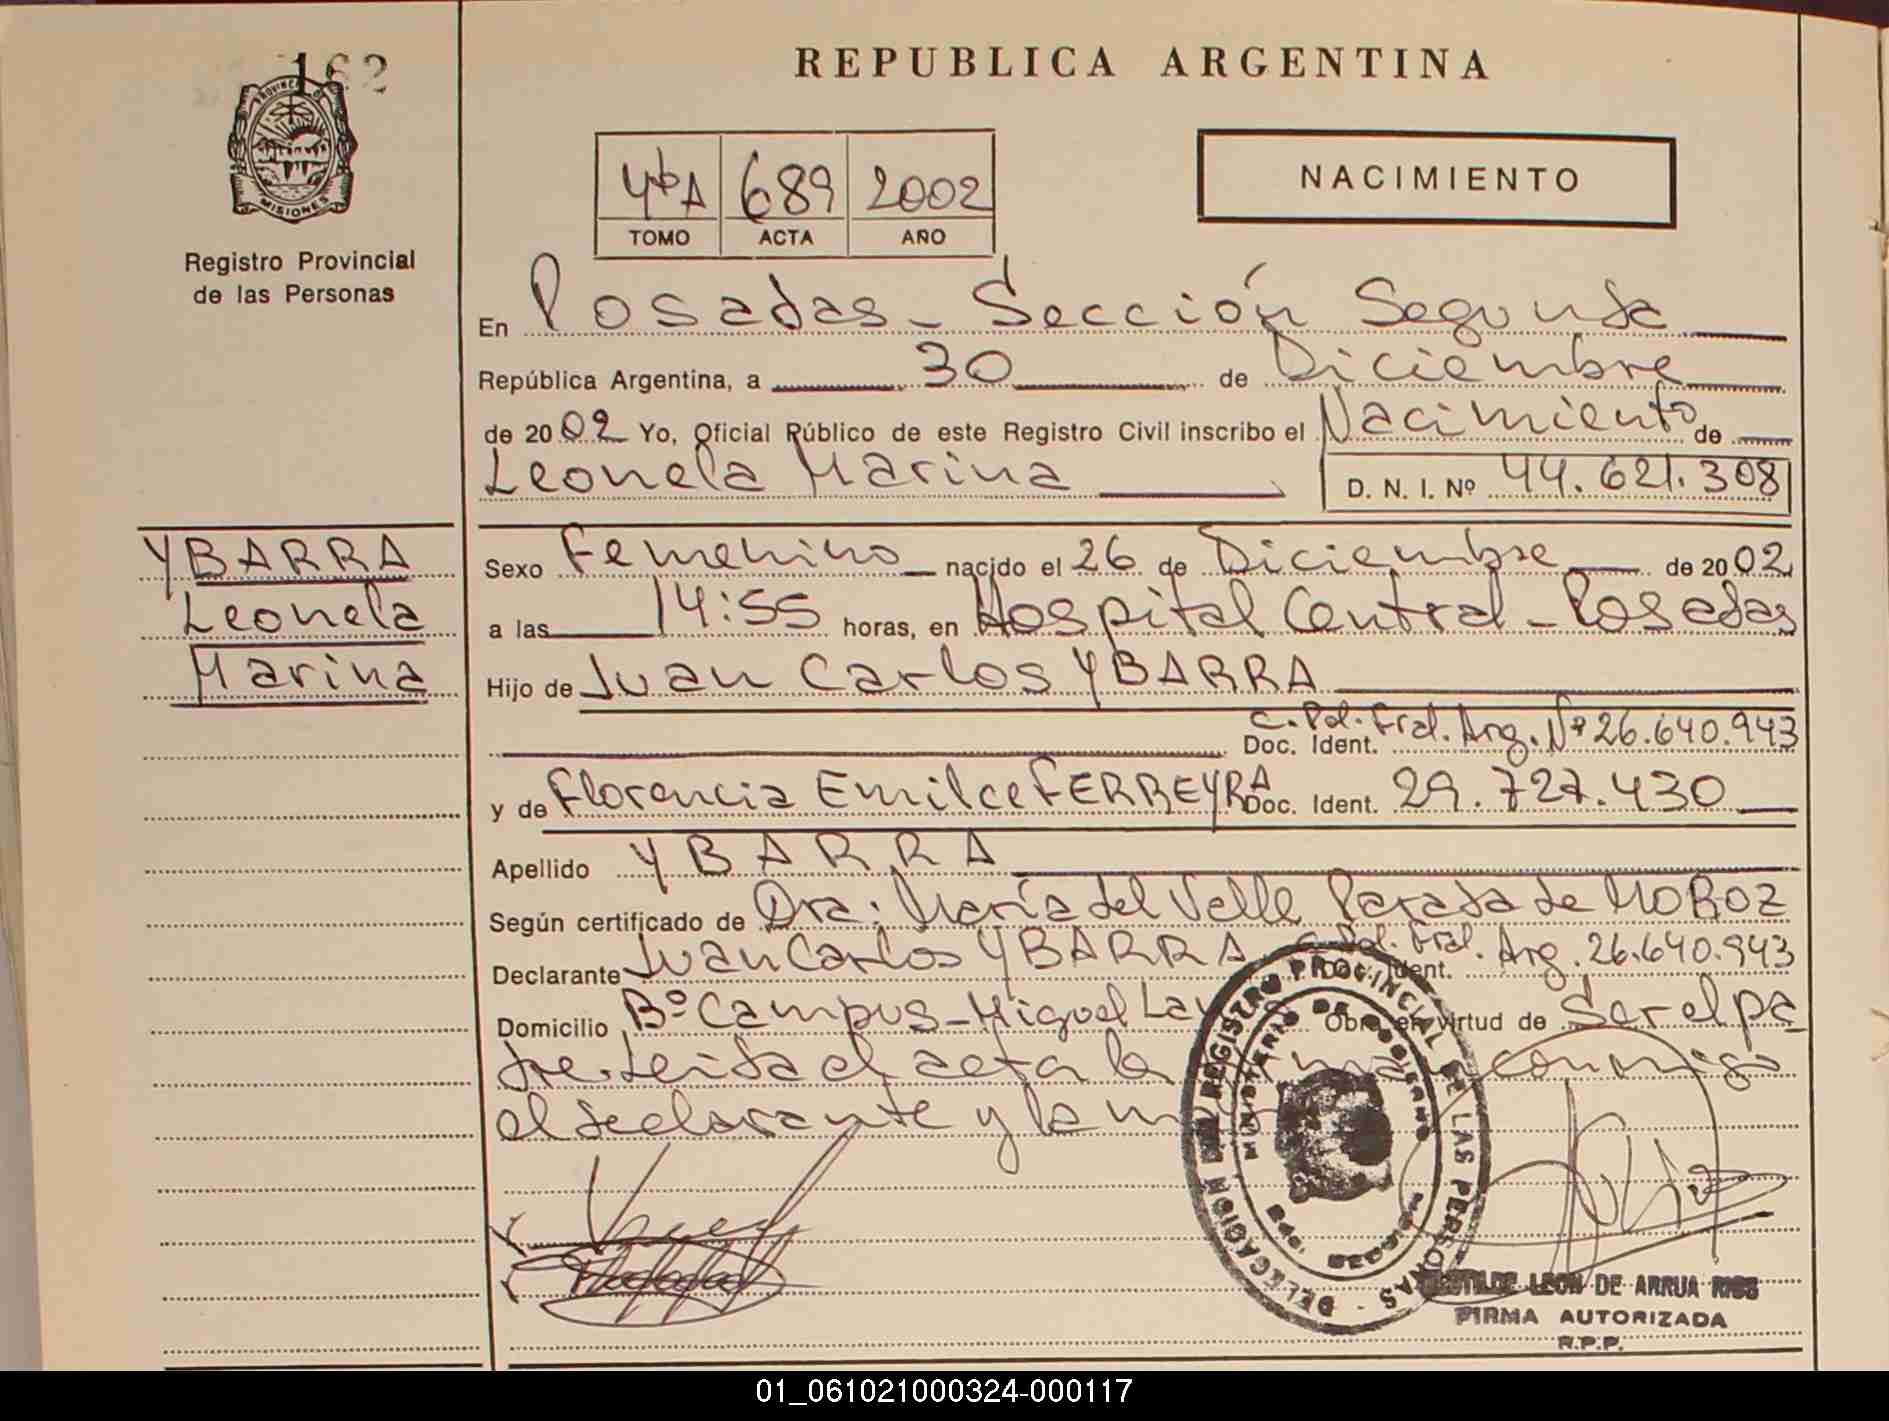 162
PROVINCIA DE
MISIONES
Registro Provincial
de las Personas
REPUBLICA ARGENTINA
689 2002
TOMO ACTA AÑO
NACIMIENTO
En Posadas - Sección Segunda
República Argentina, a 30 de Diciembre
de 2002 Yo, Oficial Público de este Registro Civil inscribo el Nacimiento de
Leonela Marina D. N. I. Nº 44.621.308
YBARRA
Leonela
Marina
Sexo Femenino nacido el 26 de Diciembre de 2002
a las 14:55 horas, en Hospital Central - Posadas
Hijo de Juan Carlos YBARRA
Doc. Ident. C. Pol. Fral. Arg. Nº 26.640.943
y de Florencia Emilce FERREYRA Doc. Ident. 29.727.430
Apellido YBARRA
Según certificado de Dra. María del Valle Parada de MOROZ
Declarante Juan Carlos YBARRA C. Pol. Fral. Arg. 26.640.943
Domicilio Bº Campus - Miguel Obra en virtud de Ser el pa
dre. Leida el acta la conmigo
el declarante y la
DELEGACION DEL REGISTRO PROVINCIAL DE LAS PERSONAS
MINISTERIO DE GOBIERNO
LEON DE ARRUA RIOS
FIRMA AUTORIZADA
R.P.P.
01_061021000324-000117